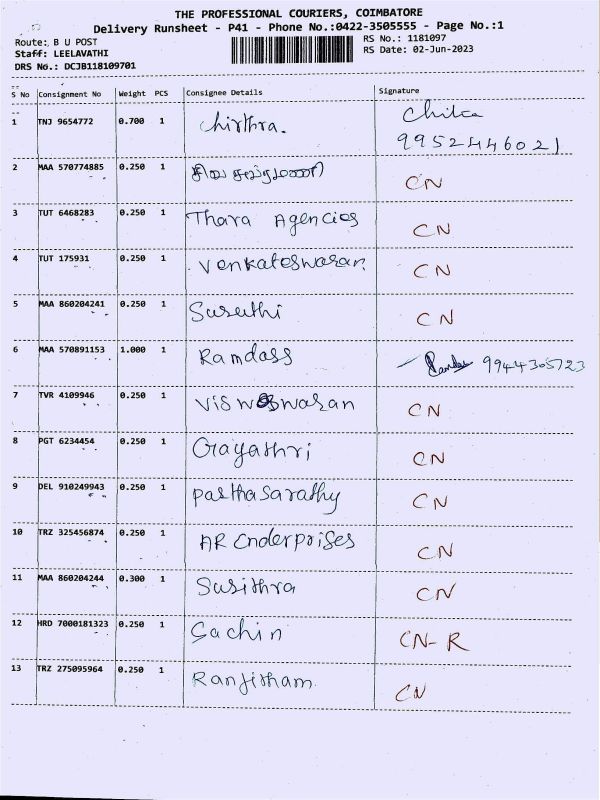 THE PROFESSIONAL COURIERS, COIMBATORE
Delivery Runsheet - P41 - Phone No.:0422-3505555 - Page No.:1
Route: B U POST
RS No.: 1181097
Staff: LEELAVATHI
RS Date: 02-Jun-2023
DRS No.: DCJB118109701
S No Consignment No Weight PCS Consignee Details Signature
1 TNJ 9654772 0.700 1 Chirthra. Chitra
9952446021
2 MAA 570774885 0.250 1 சிவ CN
3 TUT 6468283 0.250 1 Thara Agencies CN
4 TUT 175931 0.250 1 Venkateswaran CN
5 MAA 860204241 0.250 1 Suruthi CN
6 MAA 570891153 1.000 1 Ramdass 9944305723
7 TVR 4109946 0.250 1 Visweswaran CN
8 PGT 6234454 0.250 1 Gayathri CN
9 DEL 910249943 0.250 1 parthasarathy CN
10 TRZ 325456874 0.250 1 AR Enderprises CN
11 MAA 860204244 0.300 1 Susithra CN
12 HRD 7000181323 0.250 1 Sachin CN-R
13 TRZ 275095964 0.250 1 Ranjitham CN